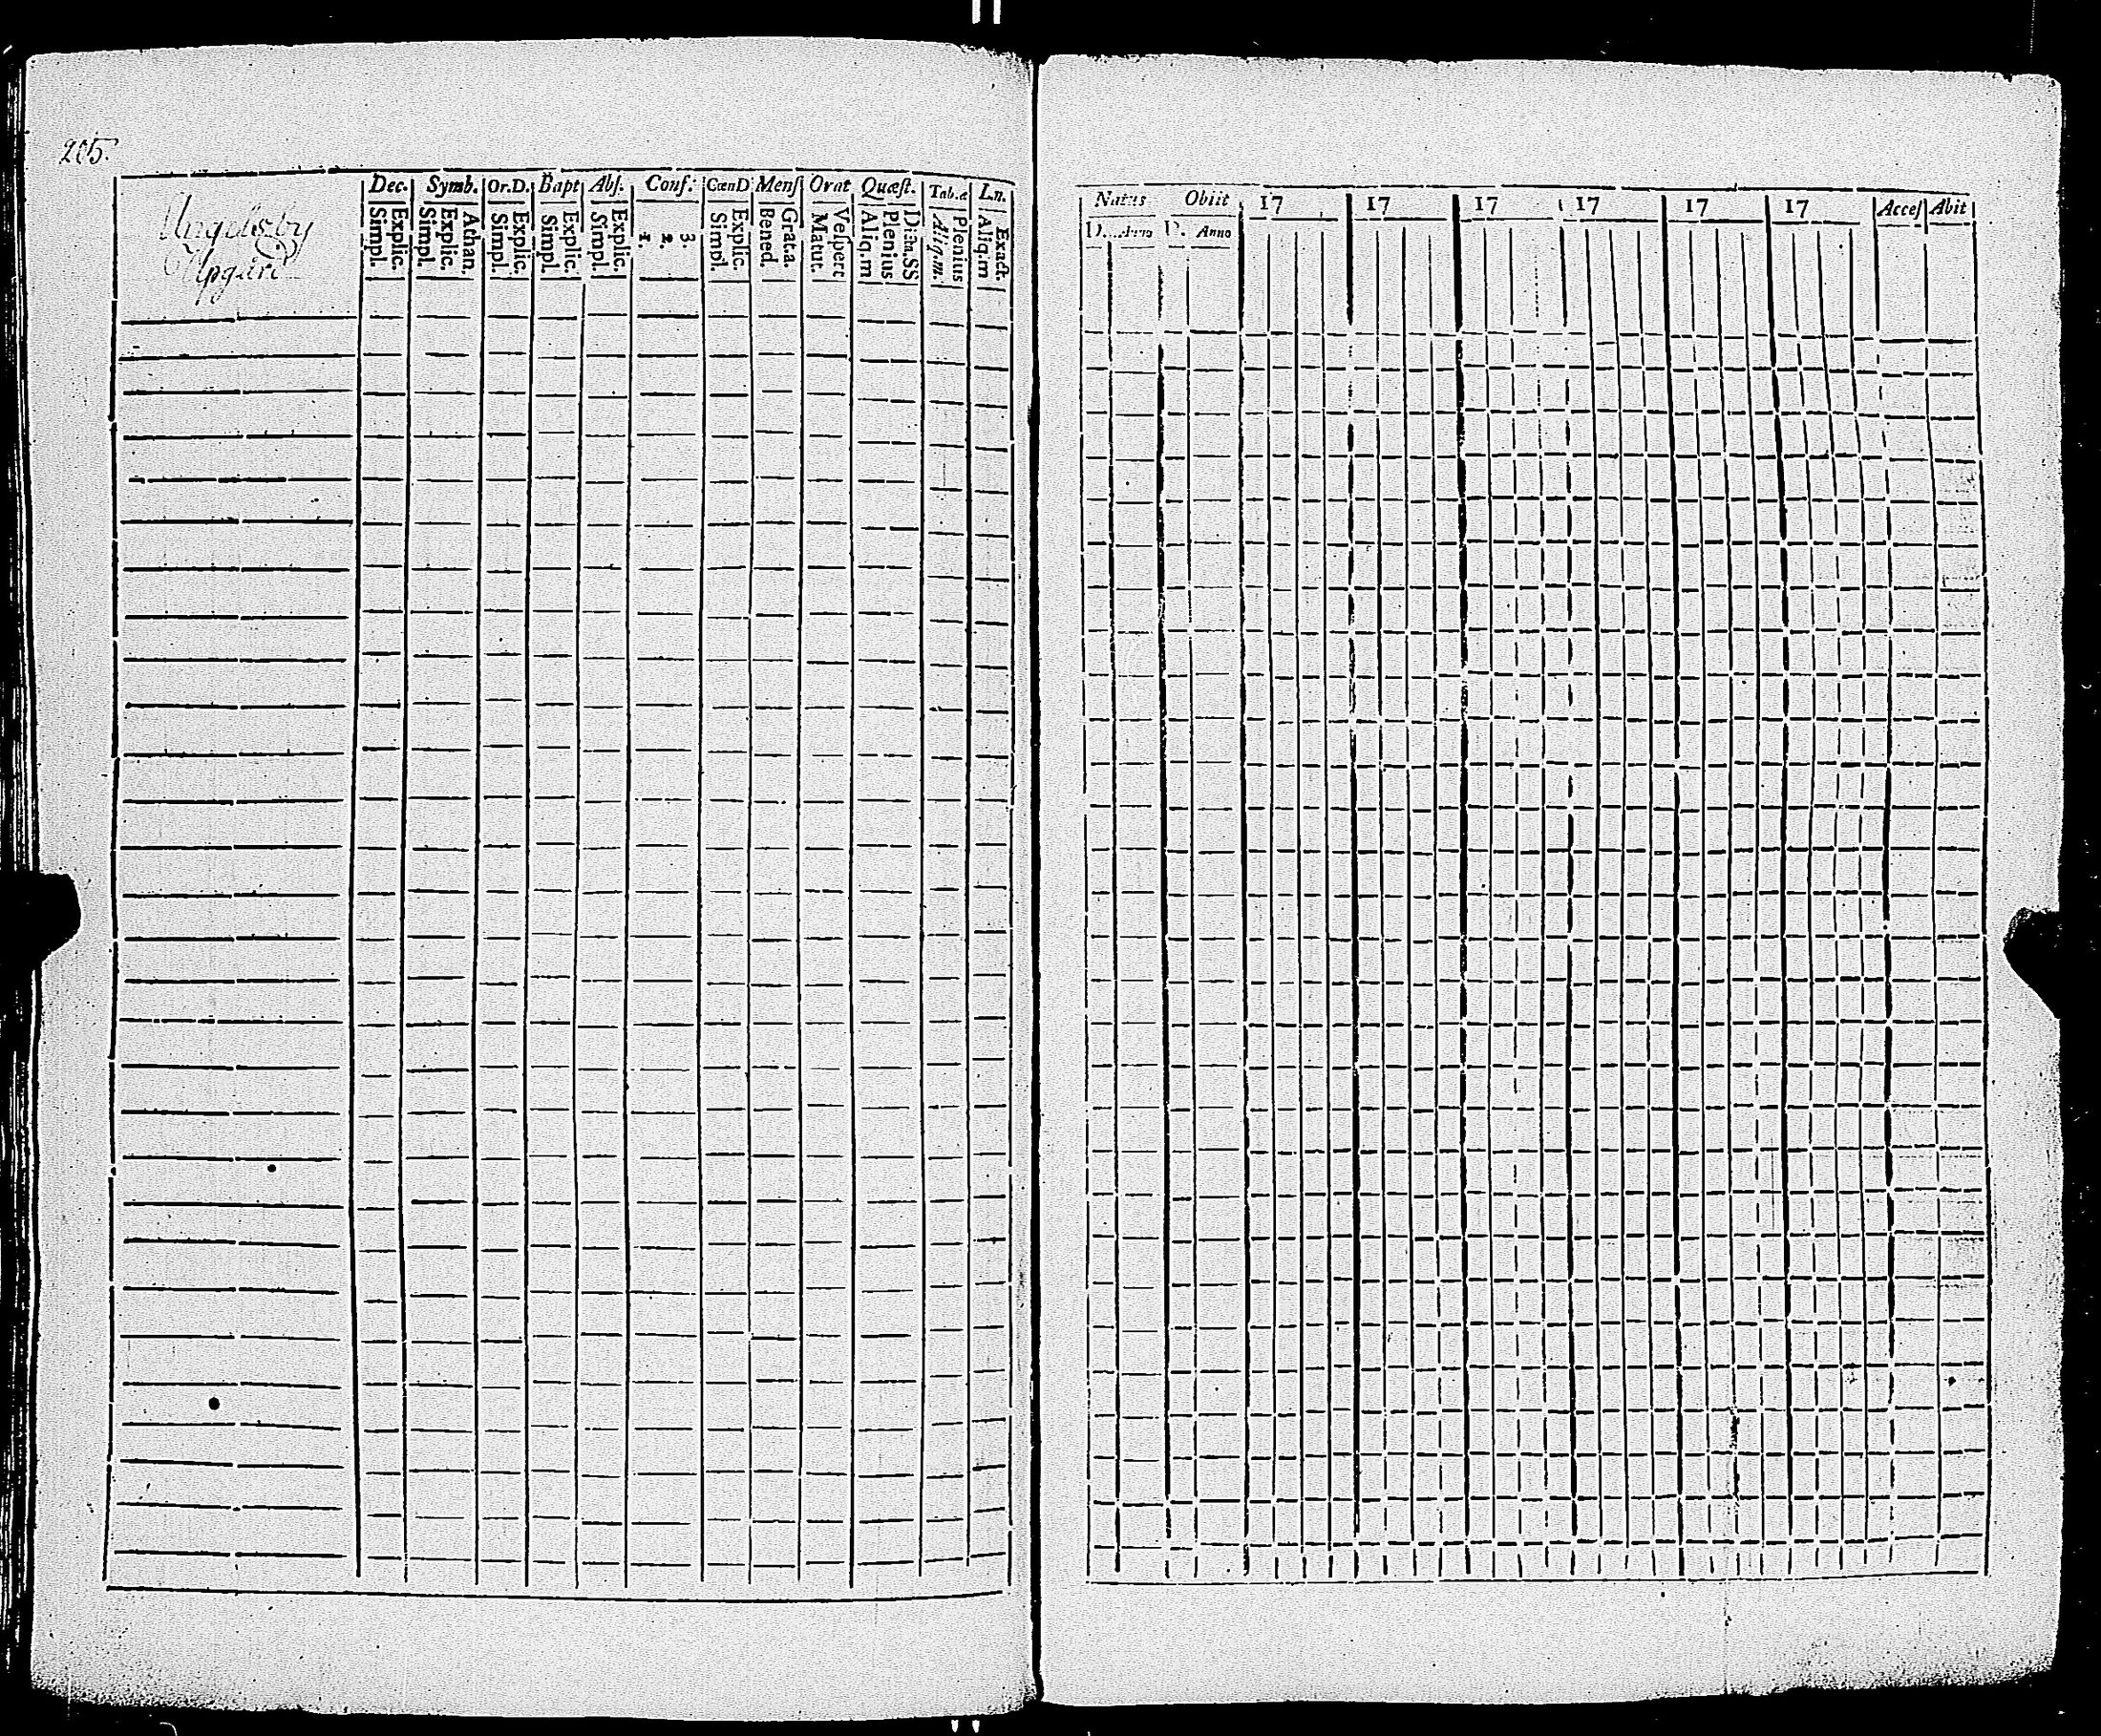 205.
Ängelsby
Upgård
Dec. Symb. Or.D. Bapt Abſ. Conf. CœnD Menſ Orat Quæſt. Tab.æ L.n.
Explic. Simpl. Athan. Explic. Simpl. Explic. Simpl. Explic. Simpl. Explic. Simpl. 3. 2. 1. Explic. Simpl. Grat.a. Bened. Veſpert Matut. Dicta.SS Plenius Aliq.m Plenius Aliq.m. Exact. Aliq.m
Natus Obiit 17 17 17 17 17 17 Acceſ Abit
D. Anno D. Anno